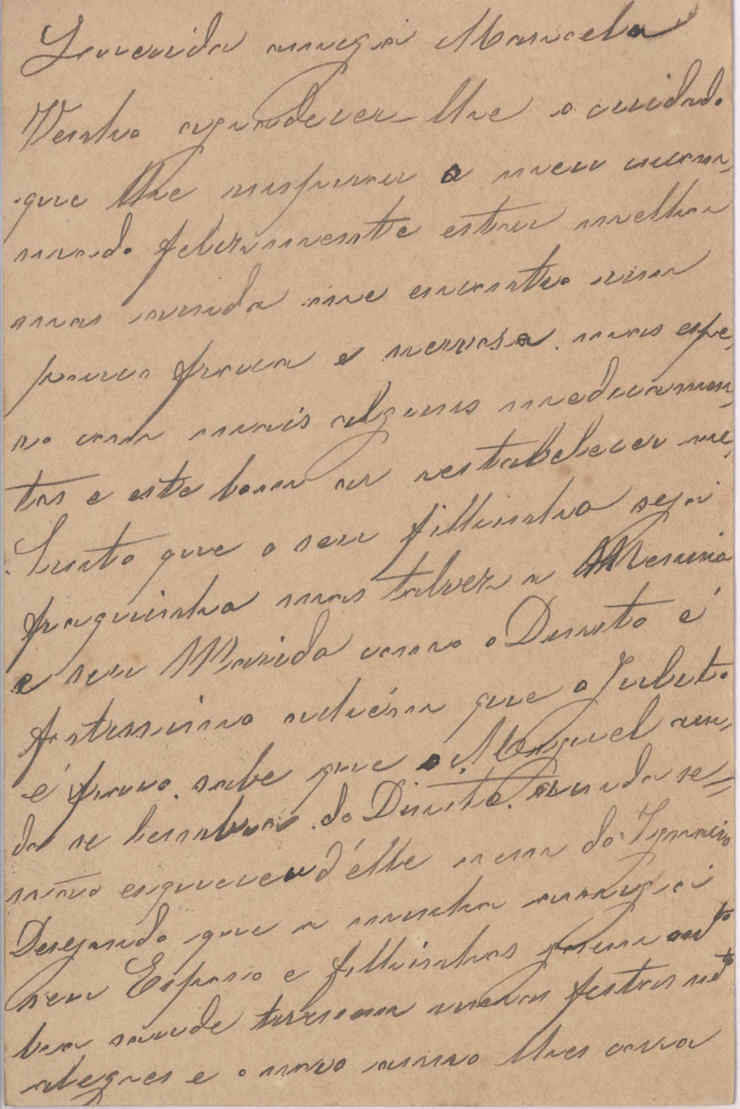 Querida amiga Marcela
Venho agradecer-lhe o cuidado
que lhe inspirou o meu incom-
modo felizmente estou melhor
mas ainda me encontro um
pouco fraca e nervosa. mas espe-
ro com mais alguns medicamen-
tos e este bom ar restabelecer-me,
Sinto que o seu filhinho seja
fraquinho mas talvez a Menina
e seu Marido como o Dinito é
fortissimo achem que o Julito
é fraco. sabe que o Miguel ain-
da se lembra do Dinito. ainda se
não esqueceu d'elle nem do Ignacio
Desejando que a minha amiga
seu Esposo e filhinhos gosem
boa saude tivessem umas festas
alegres e o novo anno lhes corra